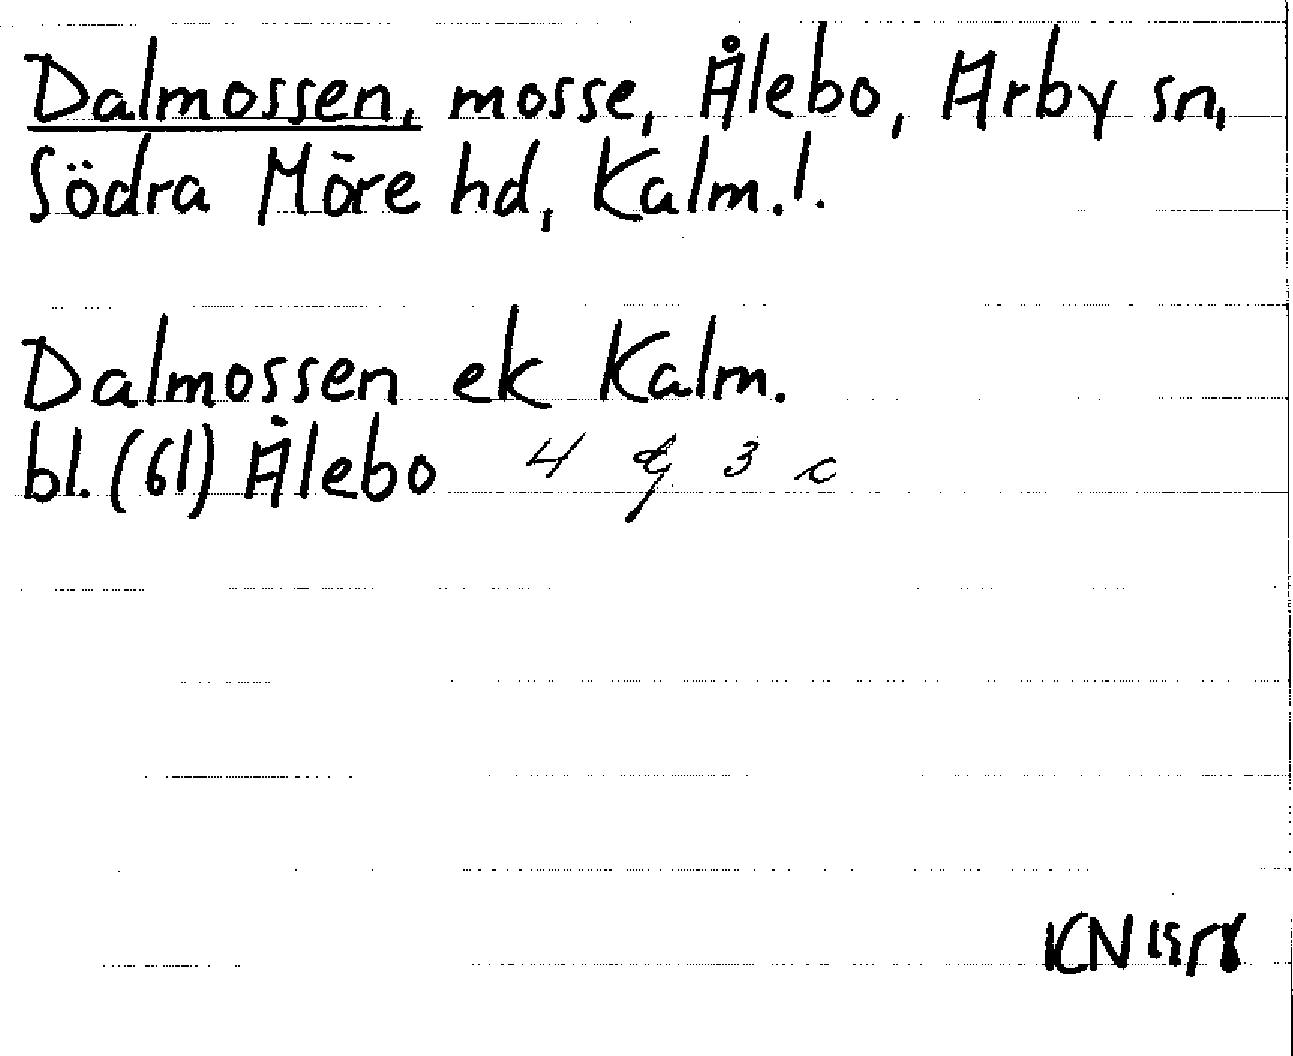 Dalmossen, mosse, Ålebo, Arby sn,
Södra Möre hd, Kalm. l.
Dalmossen ek Kalm.
bl. (61) Ålebo 4 g 3 c
KN